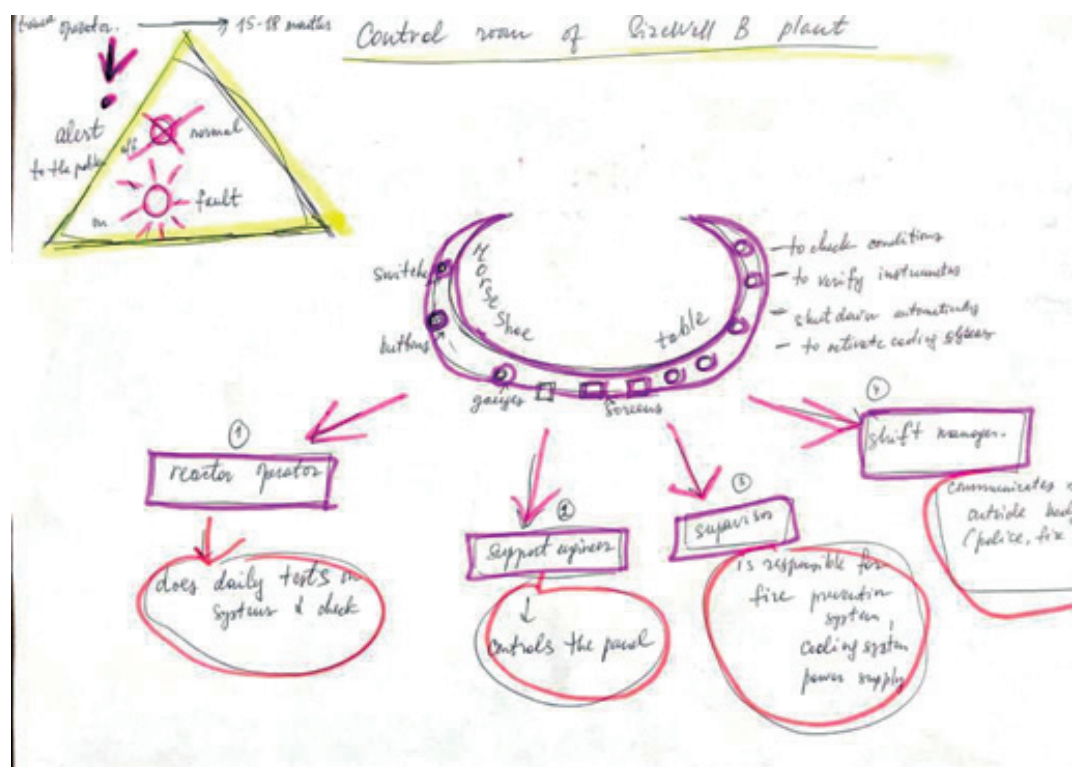 operator. → 15-18 months
Control room of Sizewell B plant
alert
to the
off
normal
on
fault
Horse shoe
table
switch
buttons
gauges
screens
- to check conditions
- to verify
- shut down automatically
- to activate cooling
①
reactor operator
does daily tests on
systems & check
②
support engineer
↓
controls the panel
③
supervisor
is responsible for
fire prevention
system,
cooling system
power supply
④
shift manager.
communicates
outside
(police, fire